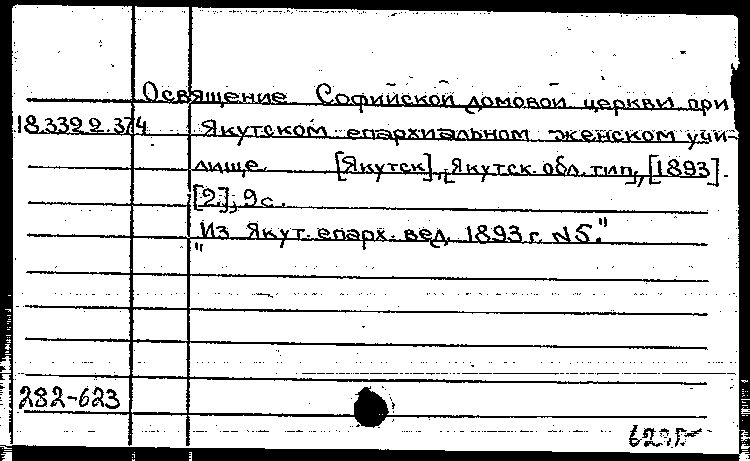 Освящение Софийской домовой церкви при
18.3322.374 Якутском епархиальном женском учи-
лище. [Якутск], [Якутск. обл. тип], [1893].
[2], 9 с.
"Из Якут. епарх. вед. 1893 г. N5."
282-623